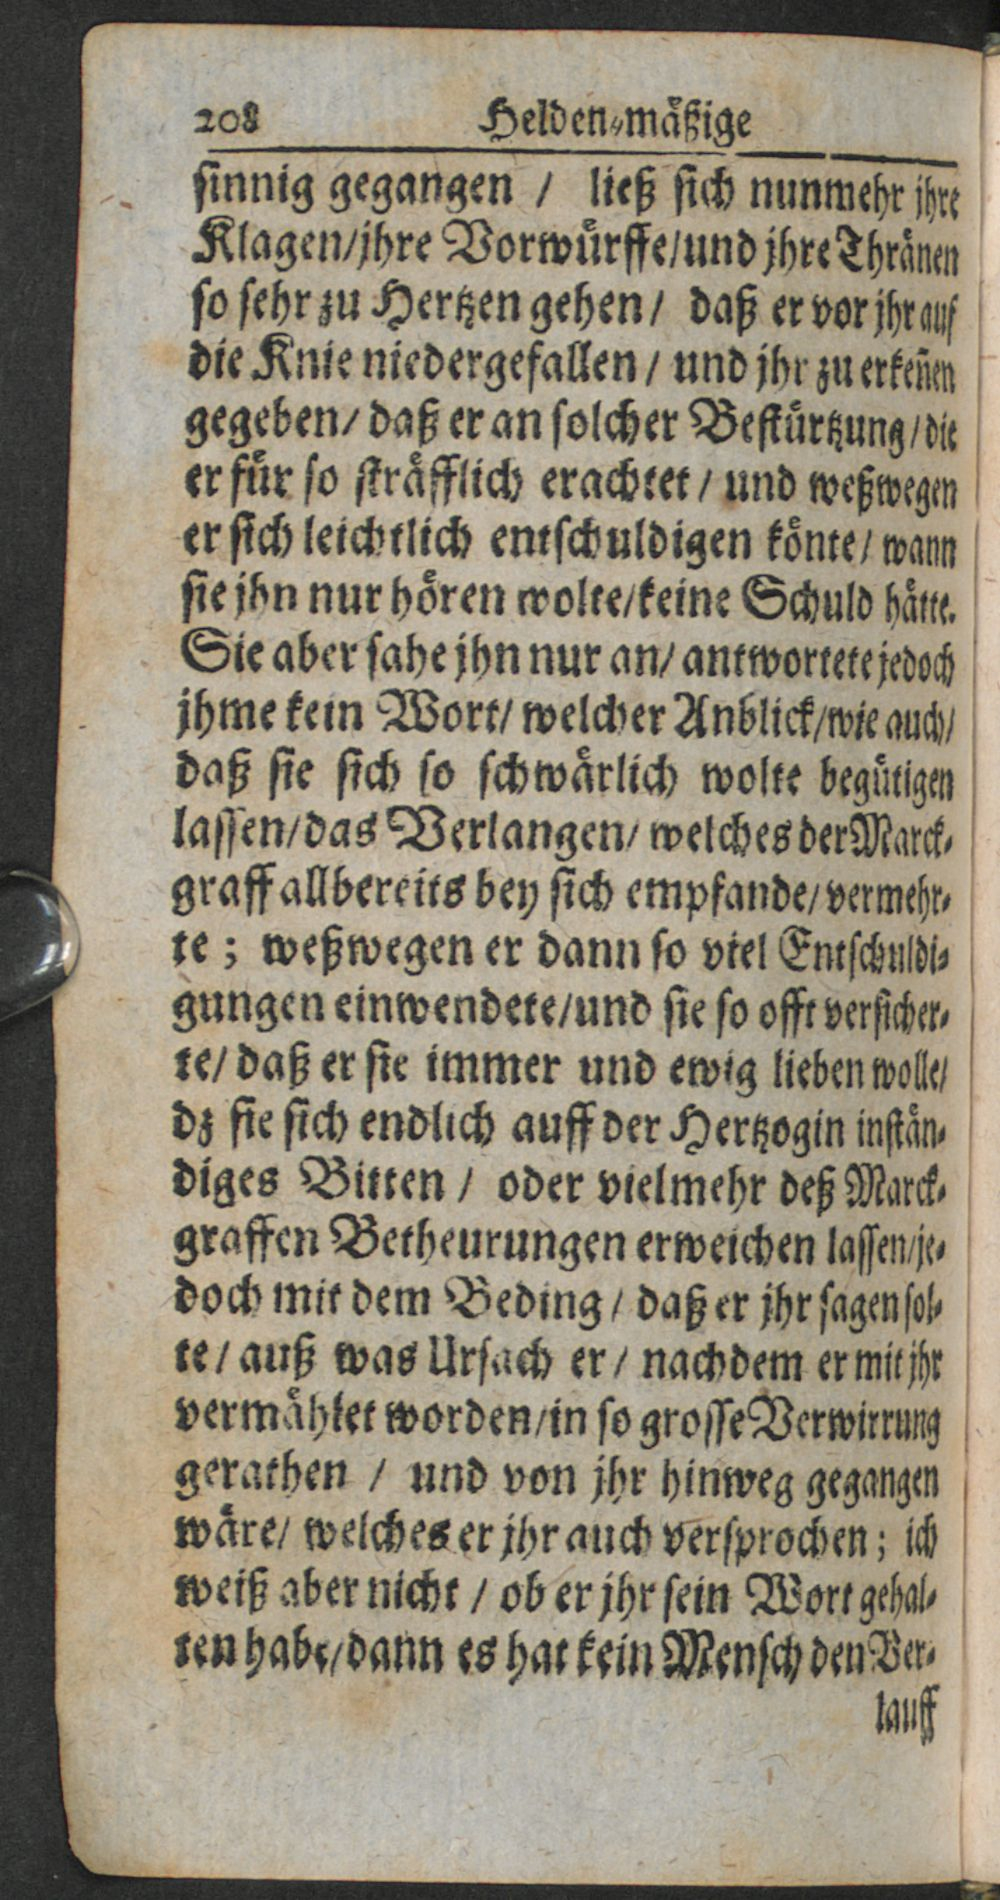 208 Helden-mäßige
sinnig gegangen / ließ sich nunmehr jhre
Klagen/jhre Vorwürffe/und jhre Thränen
so sehr zu Hertzen gehen / daß er vor jhr auf
die Knie niedergefallen / und jhr zu erkeñen
gegeben/ daß er an solcher Bestürtzung / die
er für so sträfflich erachtet / und weßwegen
er sich leichtlich entschuldigen könte / wann
sie jhn nur hören wolte/keine Schuld hätte.
Sie aber sahe jhn nur an/ antwortete jedoch
jhme kein Wort/ welcher Anblick/wie auch/
daß sie sich so schwärlich wolte begütigen
lassen/das Verlangen/ welches der Marck-
graff allbereits bey sich empfande/vermehr-
te ; weßwegen er dann so viel Entschuldi-
gungen einwendete/und sie so offt versicher-
te/ daß er sie immer und ewig lieben wolle/
dz sie sich endlich auff der Hertzogin instän-
diges Bitten / oder vielmehr deß Marck-
graffen Betheurungen erweichen lassen/je-
doch mit dem Beding / daß er jhr sagen sol-
te / auß was Ursach er / nachdem er mit jhr
vermählet worden/in so grosse Verwirrung
gerathen / und von jhr hinweg gegangen
wäre/ welches er jhr auch versprochen ; ich
weiß aber nicht / ob er jhr sein Wort gehal-
ten habe/dann es hat kein Mensch den Ver-
lauff